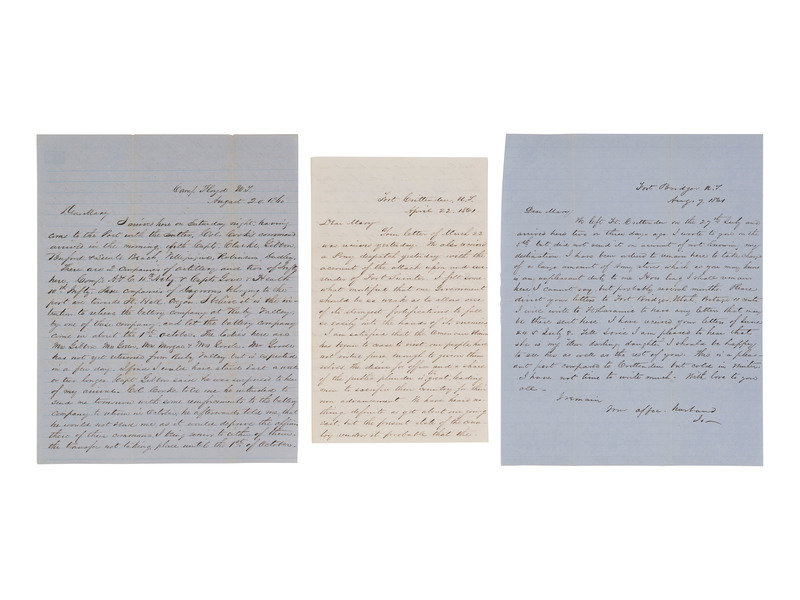 Camp Floyd U.T.
August 20 1860
Dear Mary
I arrived here on Saturday night having
come to the Post with the Cooke's command
arrived in the morning with Capts. Clarke, Gibbon
Buford & Lieuts Beach, Robinson
There are 2 companies of artillery and two of Infty
here, Comp's A & C 4th Arty & Capts & Heath
10th Infty. Three companies of Dragoons belonging to the
post are towards Ft Hall, Oregon. I believe it is the in-
tention to relieve the battery company at Ruby Valley
by one of these company, and let the battery company
come in about the 1st October. The ladies here are
Mrs Gibbon
has not yet returned from Ruby Valley but is expected
in a few days.
or two longer. Capt Gibbon said he was surprised to hear
of my arrival. Col. Cooke told me he wished to
send me tomorrow with some reinforcements to the battery
company to return in October, he afterwards told me that
he would not send me as it would deprive the
there of their command, I being senior to either of them
the transfer not taking place until the 1st of October.
Fort Crittenden, U.T.
April 22, 1861
Dear Mary
Your letter of March 22
was received yesterday. We also received
a Pony dispatch yesterday with the
account of the attack upon and sur-
render of Fort Sumter. I felt some
what mortified that our Government
should be so weak as to allow one
of its strongest fortifications to fall
so easily into the hands of its enemies
I am satisfied that the American Union
has soon to cease to exist our people have
not virtue pure enough to govern them
selves. The desire for office and a share
of the public plunder is great, leading
men to sacrifice their country for their
own advancement. We have heard no
thing definite as yet about our going
east but the present state of the coun
try renders it probable that the
Fort Bridger U.T.
Aug. 9 1861
Dear Mary
We left Ft. Crittenden on the 27th July and
arrived here two or three days ago I wrote to you on the
5th but did not send it on account of not knowing my
destination I have been ordered to remain here to take charge
of a large amount of Army stores which as you may know
is an unpleasant duty to me. How long I shall remain
here I cannot say but probably several months. Please
direct your letters to Fort Bridger Utah. Postage 10 cents
I will write to to have any letters that may
be there sent here. I have received your letters of June
24 & July 8. Tell I am pleased to hear that
she is my own darling daughter. I should be happy
to see her as well as the rest of you. This is a pleas-
ant post compared to Crittenden but cold in winter
I have not time to write much. With love to you
all -
I remain
Your affec. husband